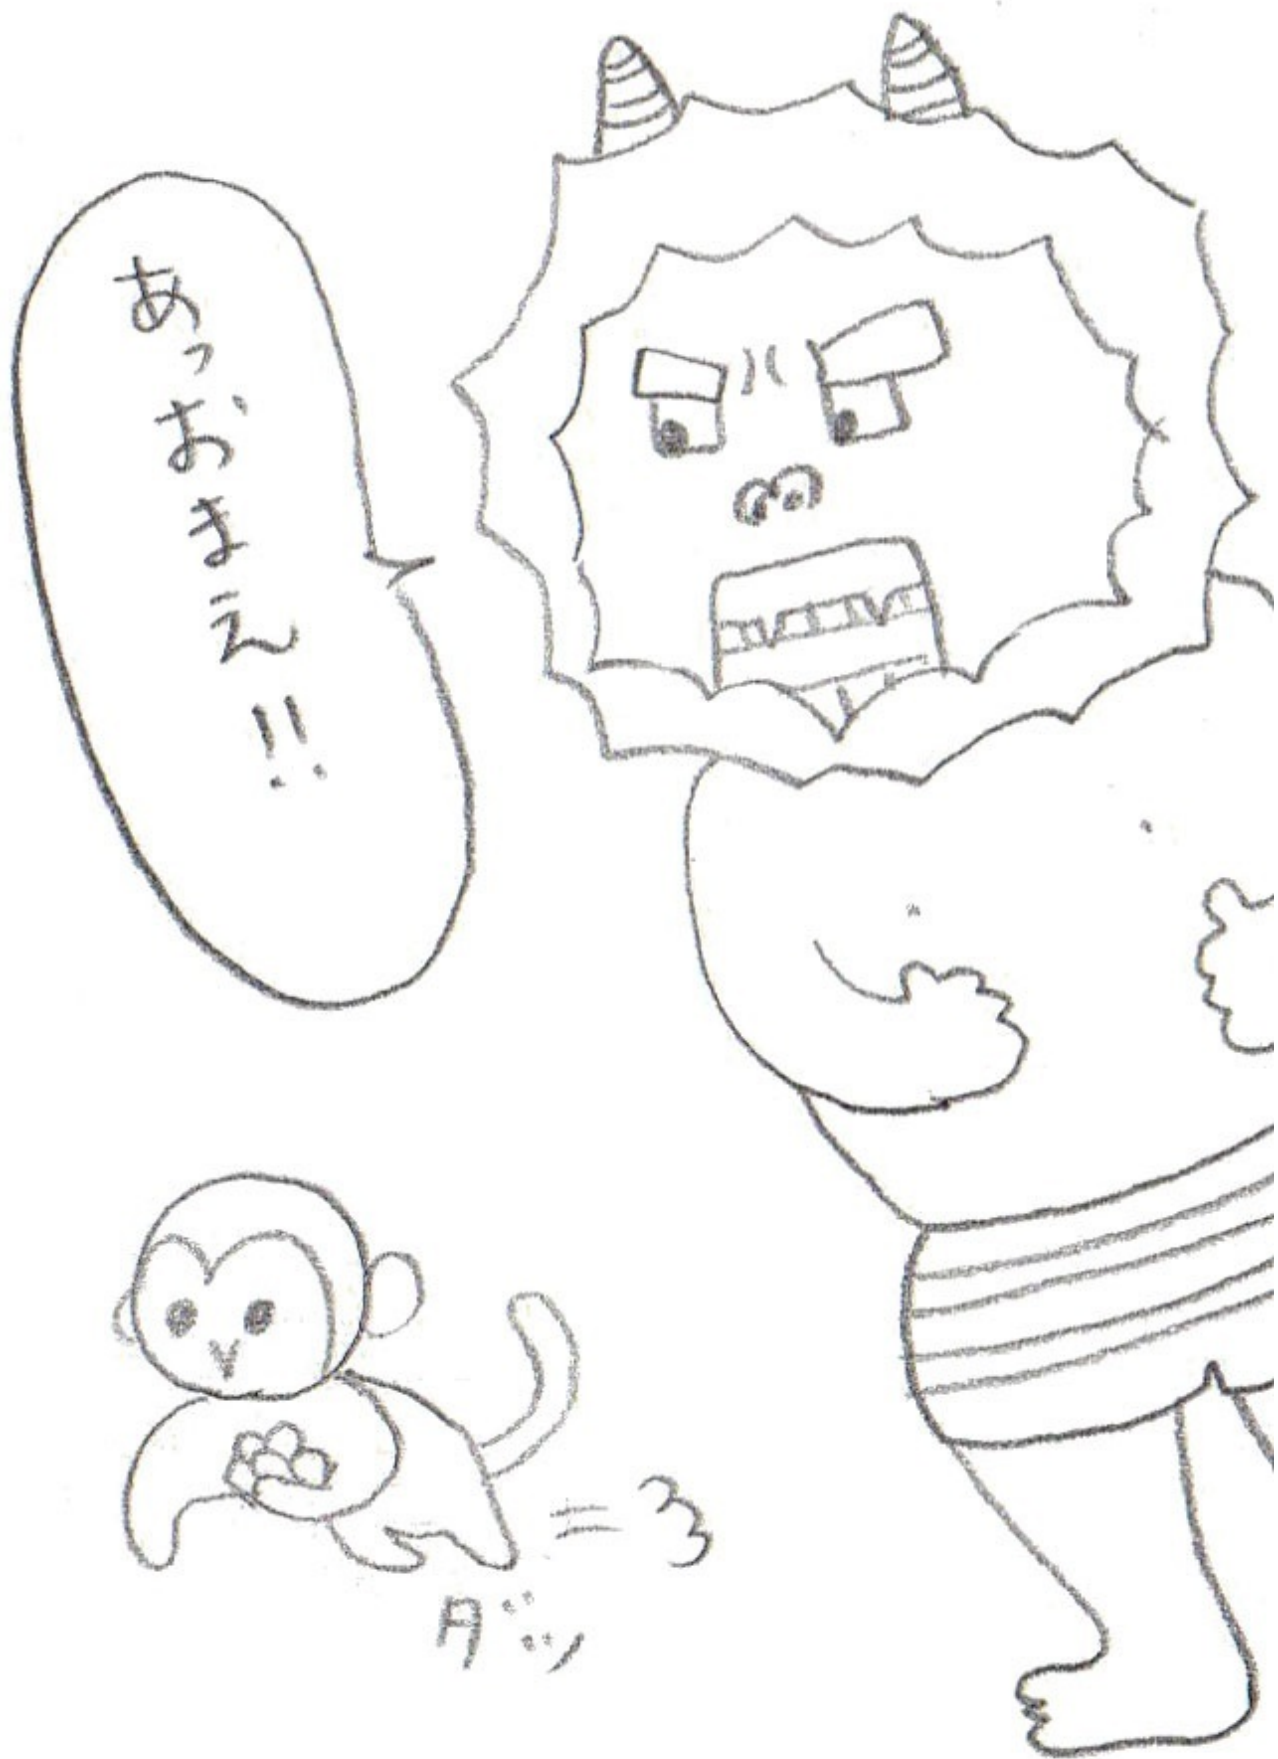 あっおまえ!!
ダッ